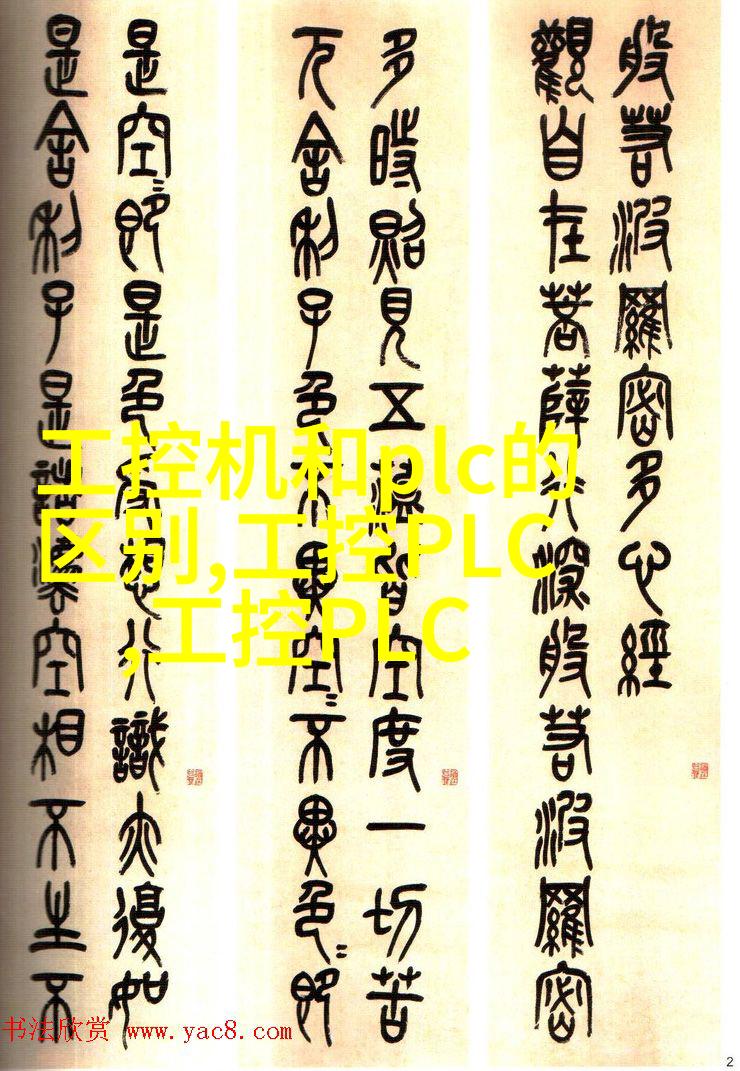 般若波羅密多心經
觀自在菩薩行深般若波羅密
多時照見五蘊皆空度一切苦
厄舍利子色不異空〻不異色〻即
是空〻即是色受想行識亦復如
是舍利子是諸法空相不生不
工控机和plc的
区别,工控PLC
,工控PLC
书法欣赏 www.yac8.com
2